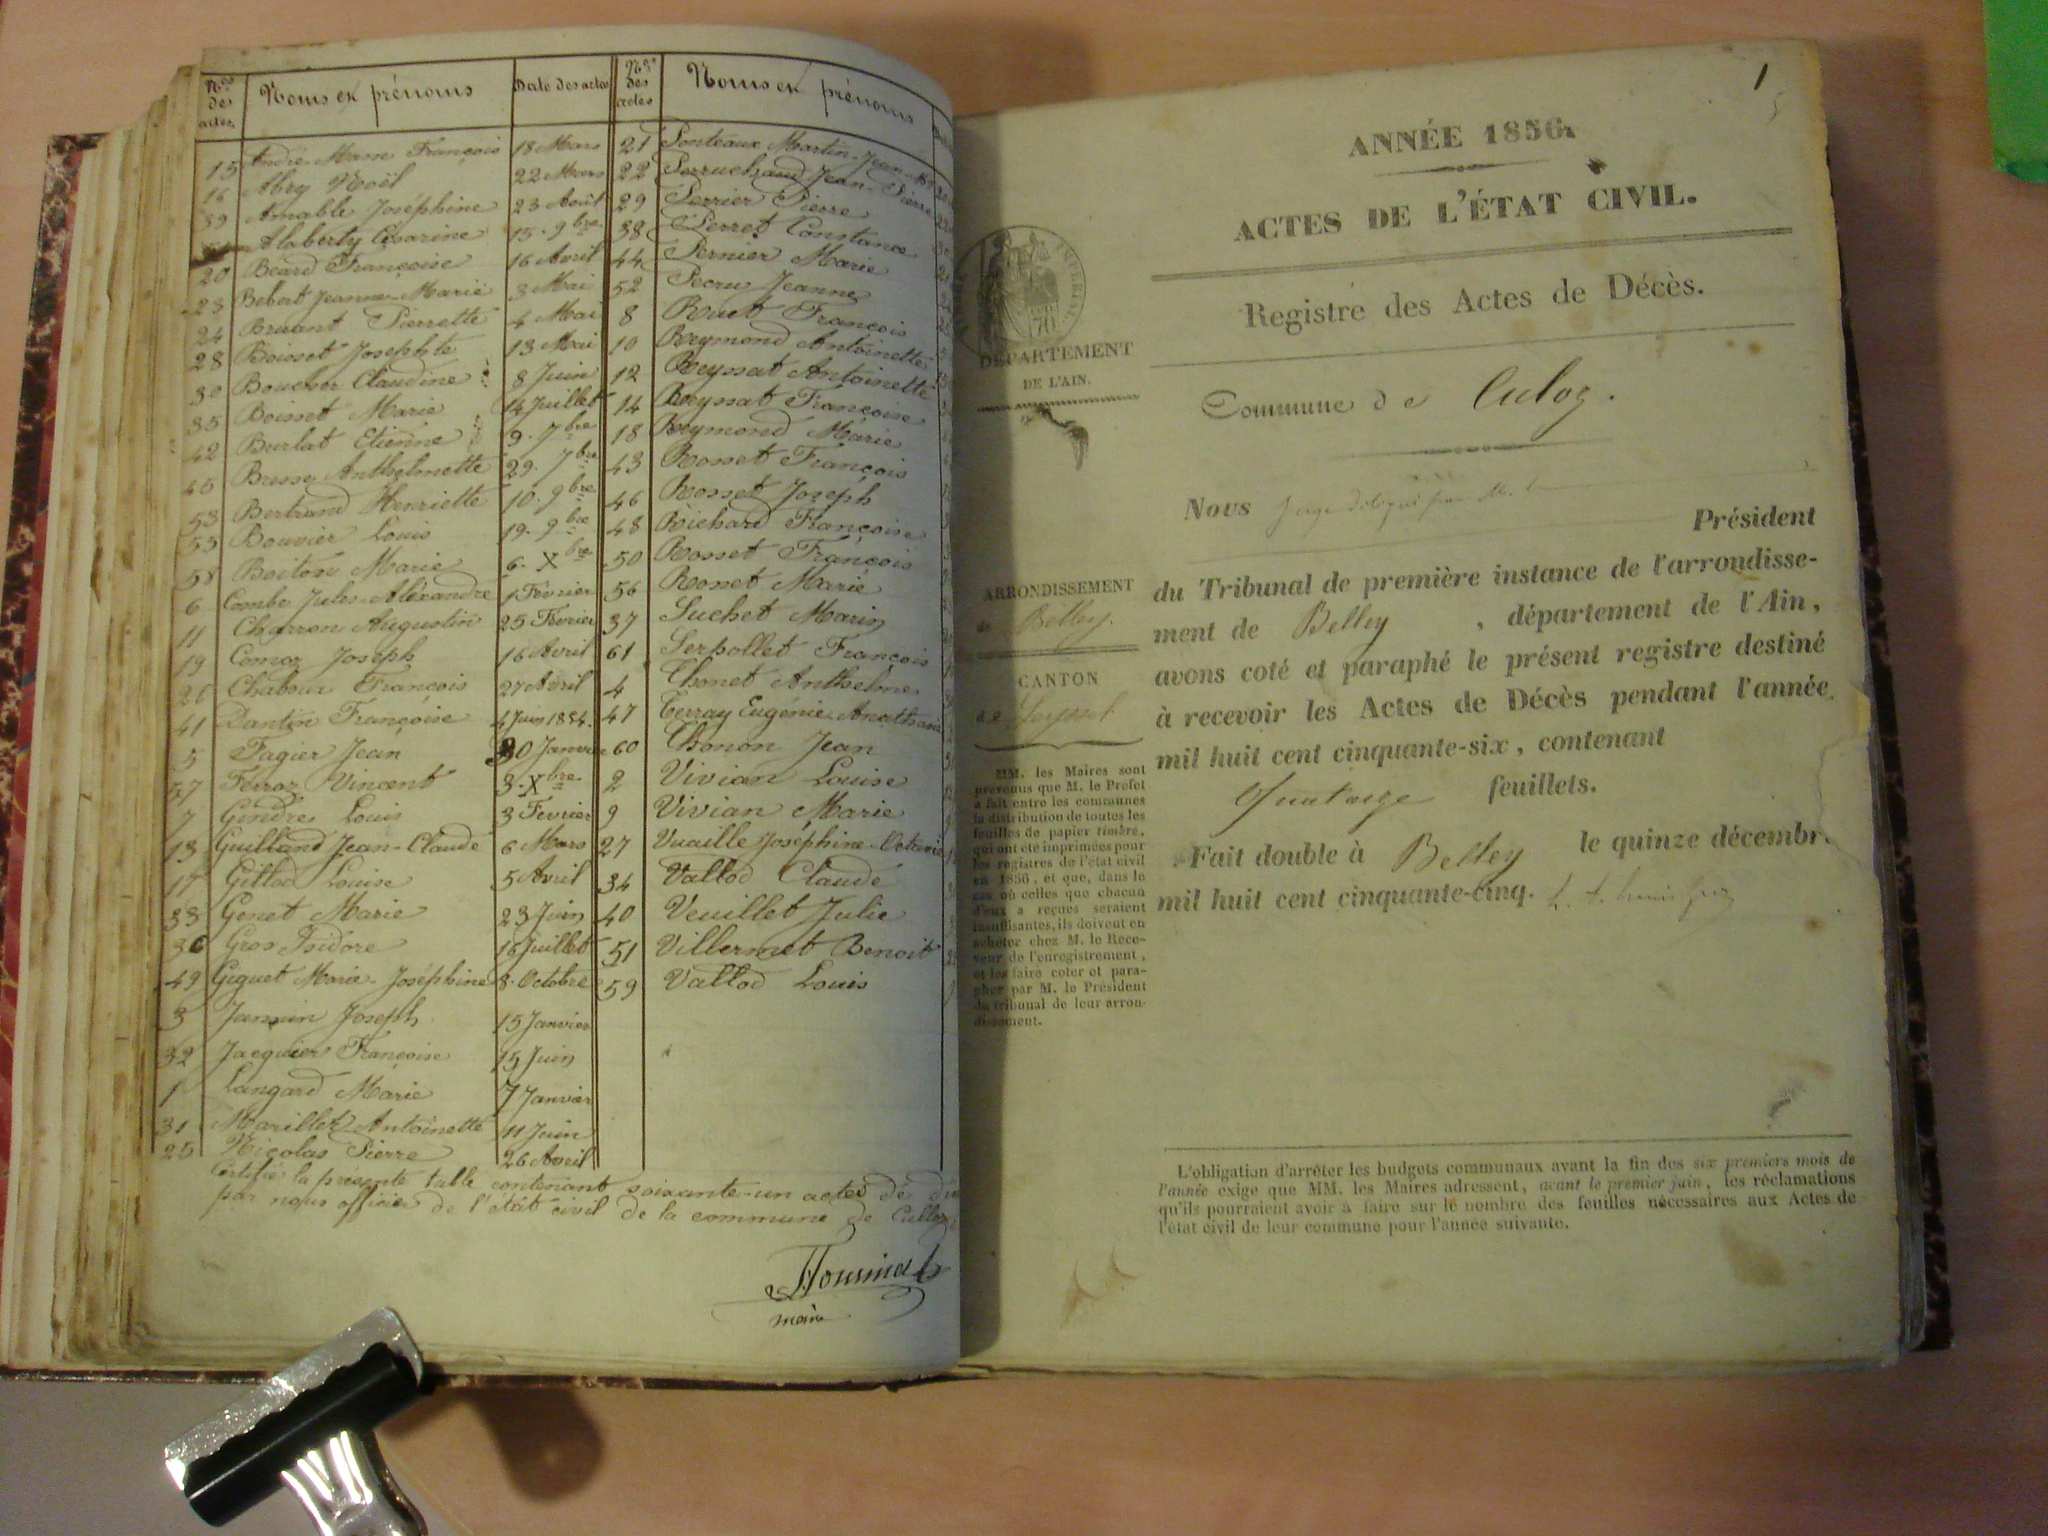 Nos des actes
Noms et prénoms
Date des actes
Nos des actes
Noms et prénoms
15 André Marie François 18 Mars
16 Abry Noël 22 Mars
39 Amable Joséphine 23 Août
Alaberty Césarine 15. 9bre
20 Béard Françoise 16 Avril
23 Bébert Jeanne-Marie 3 Mai
24 Bruant Pierrette 4 Mai
28 Boisset Josephte 13 Mai
30 Bouchor Claudine 8 Juin
35 Boisset Marie 14 Juillet
42 Burlat Etienne 9. 7bre
45 Bressy Anthelmette 29. 7bre
53 Bertrand Henriette 10. 9bre
55 Bouvier Louis 19. 9bre
58 Boiton Marie 6. Xbre
6 Combe Jules-Aléxandre 1 Février
11 Charron Augustin 25 Février
19 Comoz Joseph 16 Avril
26 Chabour François 27 Avril
41 Dantin Françoise 4 Juin 1854.
5 Fagier Jean 30 Janvier
57 Ferroz Vincent 3. Xbre
7 Gindre Louis 3 Fevrier
13 Guilland Jean-Claude 6 Mars
17 Gillod Louise 5 Avril
33 Genet Marie 23 Juin
36 Gros Isidore 16 Juillet
49 Giguet Marie-Joséphine 8. Octobre
3 Janin Joseph 15 Janvier
32 Jacquier Françoise 15 Juin
1 Langard Marie 7 Janvier
31 Marillet Antoinette 11 Juin
25 Nicolas Pierre 26 Avril
21 Ponteaux Martin-Jean-
22 Perruchaud Jean-Pierre
29 Perrier Pierre
38 Perret Constance
44 Pernier Marie
52 Pecru Jeanne
8 Ruet François
10 Reymond Antoinette
12 Reyssat Antoinette
14 Reyssat Françoise
18 Reymond Marie
43 Rosset François
46 Rosset Joseph
48 Richard Françoise
50 Rosset François
56 Ronet Marie
37 Suchet Marin
61 Serpollet François
4 Thonet Anthelme
47 Terray Eugénie
60 Thonon Jean
2 Vivian Louise
9 Vivian Marie
27 Vuaille Joséphine-Octavie
34 Vallod Claude
40 Veuillet Julie
51 Villermet Benoit
59 Vallod Louis
Certifiée la présente table contenant soixante-un actes de
par nous officier de l'état civil de la commune de Culloz
maire
1
ANNÉE 1856.
ACTES DE L'ÉTAT CIVIL.
Registre des Actes de Décès.
IMPÉRIAL
70
DÉPARTEMENT
DE L'AIN.
Commune de Culoz.
Nous Juge délégué par M. le
Président
du Tribunal de première instance de l'arrondisse-
ment de Belley, département de l'Ain,
avons coté et paraphé le présent registre destiné
à recevoir les Actes de Décès pendant l'année
mil huit cent cinquante-six, contenant
feuillets.
Fait double à Belley le quinze décembr
mil huit cent cinquante-cinq.
ARRONDISSEMENT
de Belley.
CANTON
de Seyssel
MM. les Maires sont
prévenus que M. le Préfet
a fait entre les communes
la distribution de toutes les
feuilles de papier timbré,
qui ont été imprimées pour
les registres de l'état civil
en 1856, et que, dans le
cas où celles que chacun
d'eux a reçues seraient
insuffisantes, ils doivent en
acheter chez M. le Rece-
veur de l'enregistrement,
et les faire coter et para-
pher par M. le Président
du tribunal de leur arron-
dissement.
L'obligation d'arrêter les budgets communaux avant la fin des six premiers mois de
l'année exige que MM. les Maires adressent, avant le premier juin, les réclamations
qu'ils pourraient avoir à faire sur le nombre des feuilles nécessaires aux Actes de
l'état civil de leur commune pour l'année suivante.